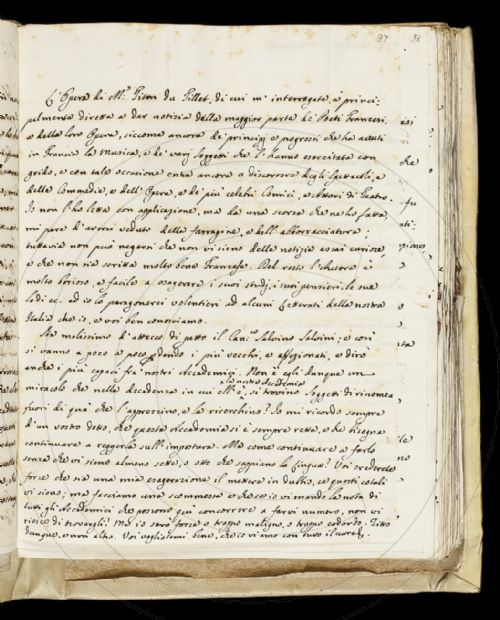 37 38
L'Opera di M.r Titon du Tillet, di cui m'interrogate, è princi-
palmente diretta a dar notizia della maggior parte de' Poeti Franzesi,
e delle loro Opere, siccome ancora de' principj, e progressi che ha avuti
in Francia la Musica, e de' varj Soggetti che l'hanno esercitata con
grido, e con tale occasione entra ancora a discorrere degli Spettacoli, e
delle Commedie, e dell'Opere, e de' più celebri Comici, e Attori di Teatro.
Io non l'ho letta con applicazione, ma da una scorsa che ne ho fatta
mi pare d'averci veduto della farragine, e dell'abborracciatura;
tuttavia non può negarsi che non vi sieno delle notizie assai curiose,
e che non sia scritta molto bene Franzese. Del resto l'Autore è
molto borioso, e facile a esagerare i suoi studj, i suoi pensieri, le sue
lodi ec. ed io lo paragonerei volentieri ad alcuni Letterati della nostra
Italia che io, e voi ben conosciamo.
Sta malissimo d'attacco di petto il Can.co Salvino Salvini, e così
si vanno a poco a poco perdendo i più vecchi, e affezionati, e dirò
anche i più capaci fra' nostri Accademici. Non è egli dunque un
miracolo che nella decadenza in cui è la nostra Accademia si trovino Soggetti di rinomea
fuori di qua che l'apprezzino, e la ricerchino? Io mi ricordo sempre
d'un vostro detto, che questa Accademia si è sempre retta, e che bisogna
continuare a reggerla sull'impostura. Ma come continuare a farlo
senza che vi sieno almeno sette, o otto che sappiano la lingua? Voi crederete
forse che sia una mia esagerazione il mettere in dubbio, se questi cotali
vi sieno; ma facciamo una scommessa e che se io vi mando la nota di
tutti gli Accademici che possono qui concorrere a farvi numero, non vi
riesce di trovargli? Ma io sarò forse o troppo maligno, o troppo codardo. Zitto
dunque, e non altro. Voi vogliatemi bene, che io vi amo con tutto il cuore.